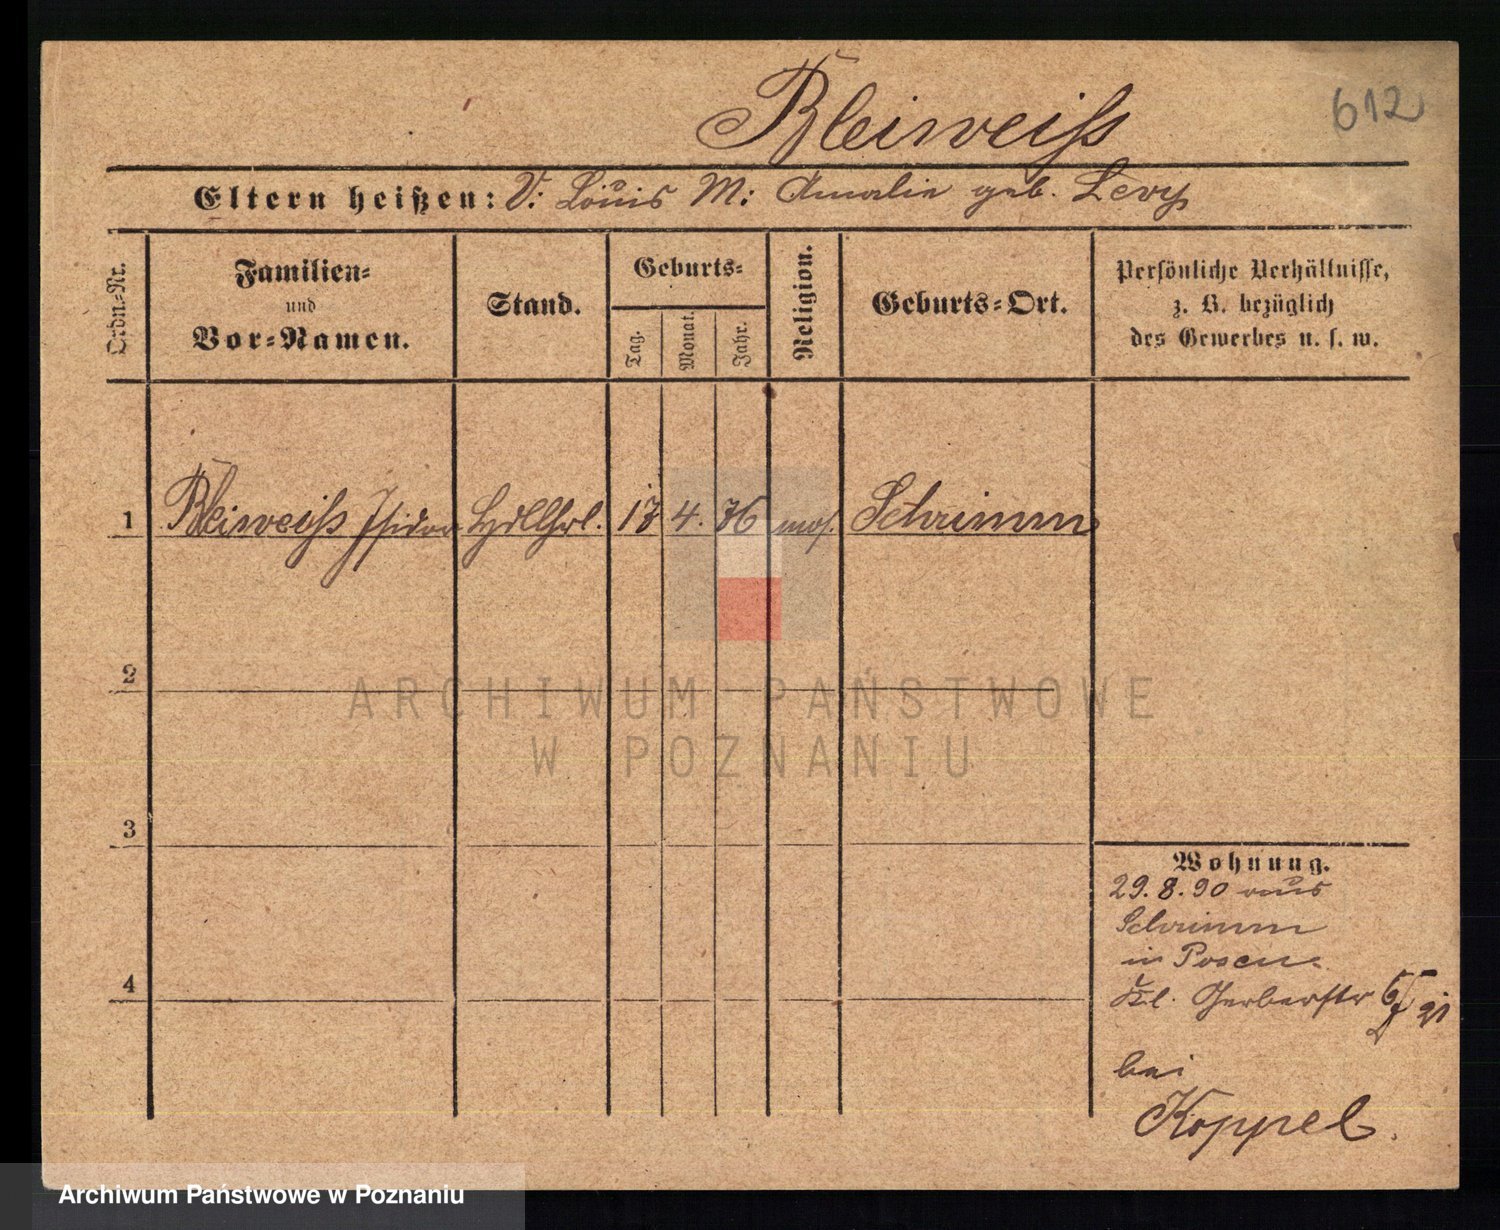 612
Bleiweiss
Eltern heißen: V: Louis M: Amalie geb. Levy
Ordn.=Nr.
Familien=
und
Vor=Namen.
Stand.
Geburts=
Tag.
Monat.
Jahr.
Religion.
Geburts=Ort.
Persönliche Verhältnisse,
z. B. bezüglich
des Gewerbes u. s. w.
1 Bleiweiss Isidor Hdllhrl. 17 4. 76 mos. Schrimm
2
3
4
Wohnung.
29.8.90 aus
Schrimm
in Posen
Kl. Gerberstr
bei
Koppel.
ARCHIWUM PAŃSTWOWE
W POZNANIU
Archiwum Państwowe w Poznaniu